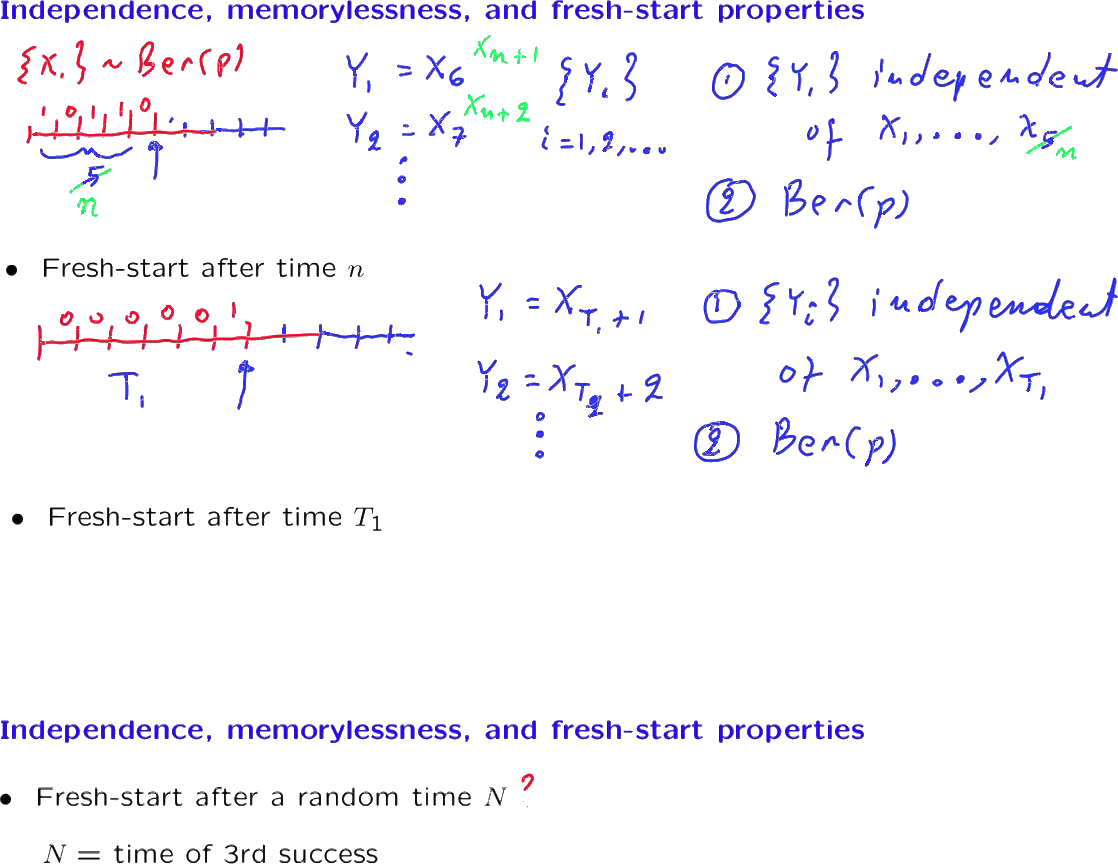 Independence, memorylessness, and fresh-start properties
{X.} ~ Ber(p)
1 0 1 1 0
5 n
Y₁ = X₆ Xₙ₊₁
Y₂ = X₇ Xₙ₊₂
{Yᵢ}
i = 1, 2, ...
① {Yᵢ} independent
of X₁, ..., X₅ n
② Ber(p)
• Fresh-start after time n
0 0 0 0 0 1
T₁
Y₁ = X_{T₁+1}
Y₂ = X_{T₂+2}
① {Yᵢ} independent
of X₁, ..., X_{T₁}
② Ber(p)
• Fresh-start after time T₁
Independence, memorylessness, and fresh-start properties
• Fresh-start after a random time N ?
N = time of 3rd success